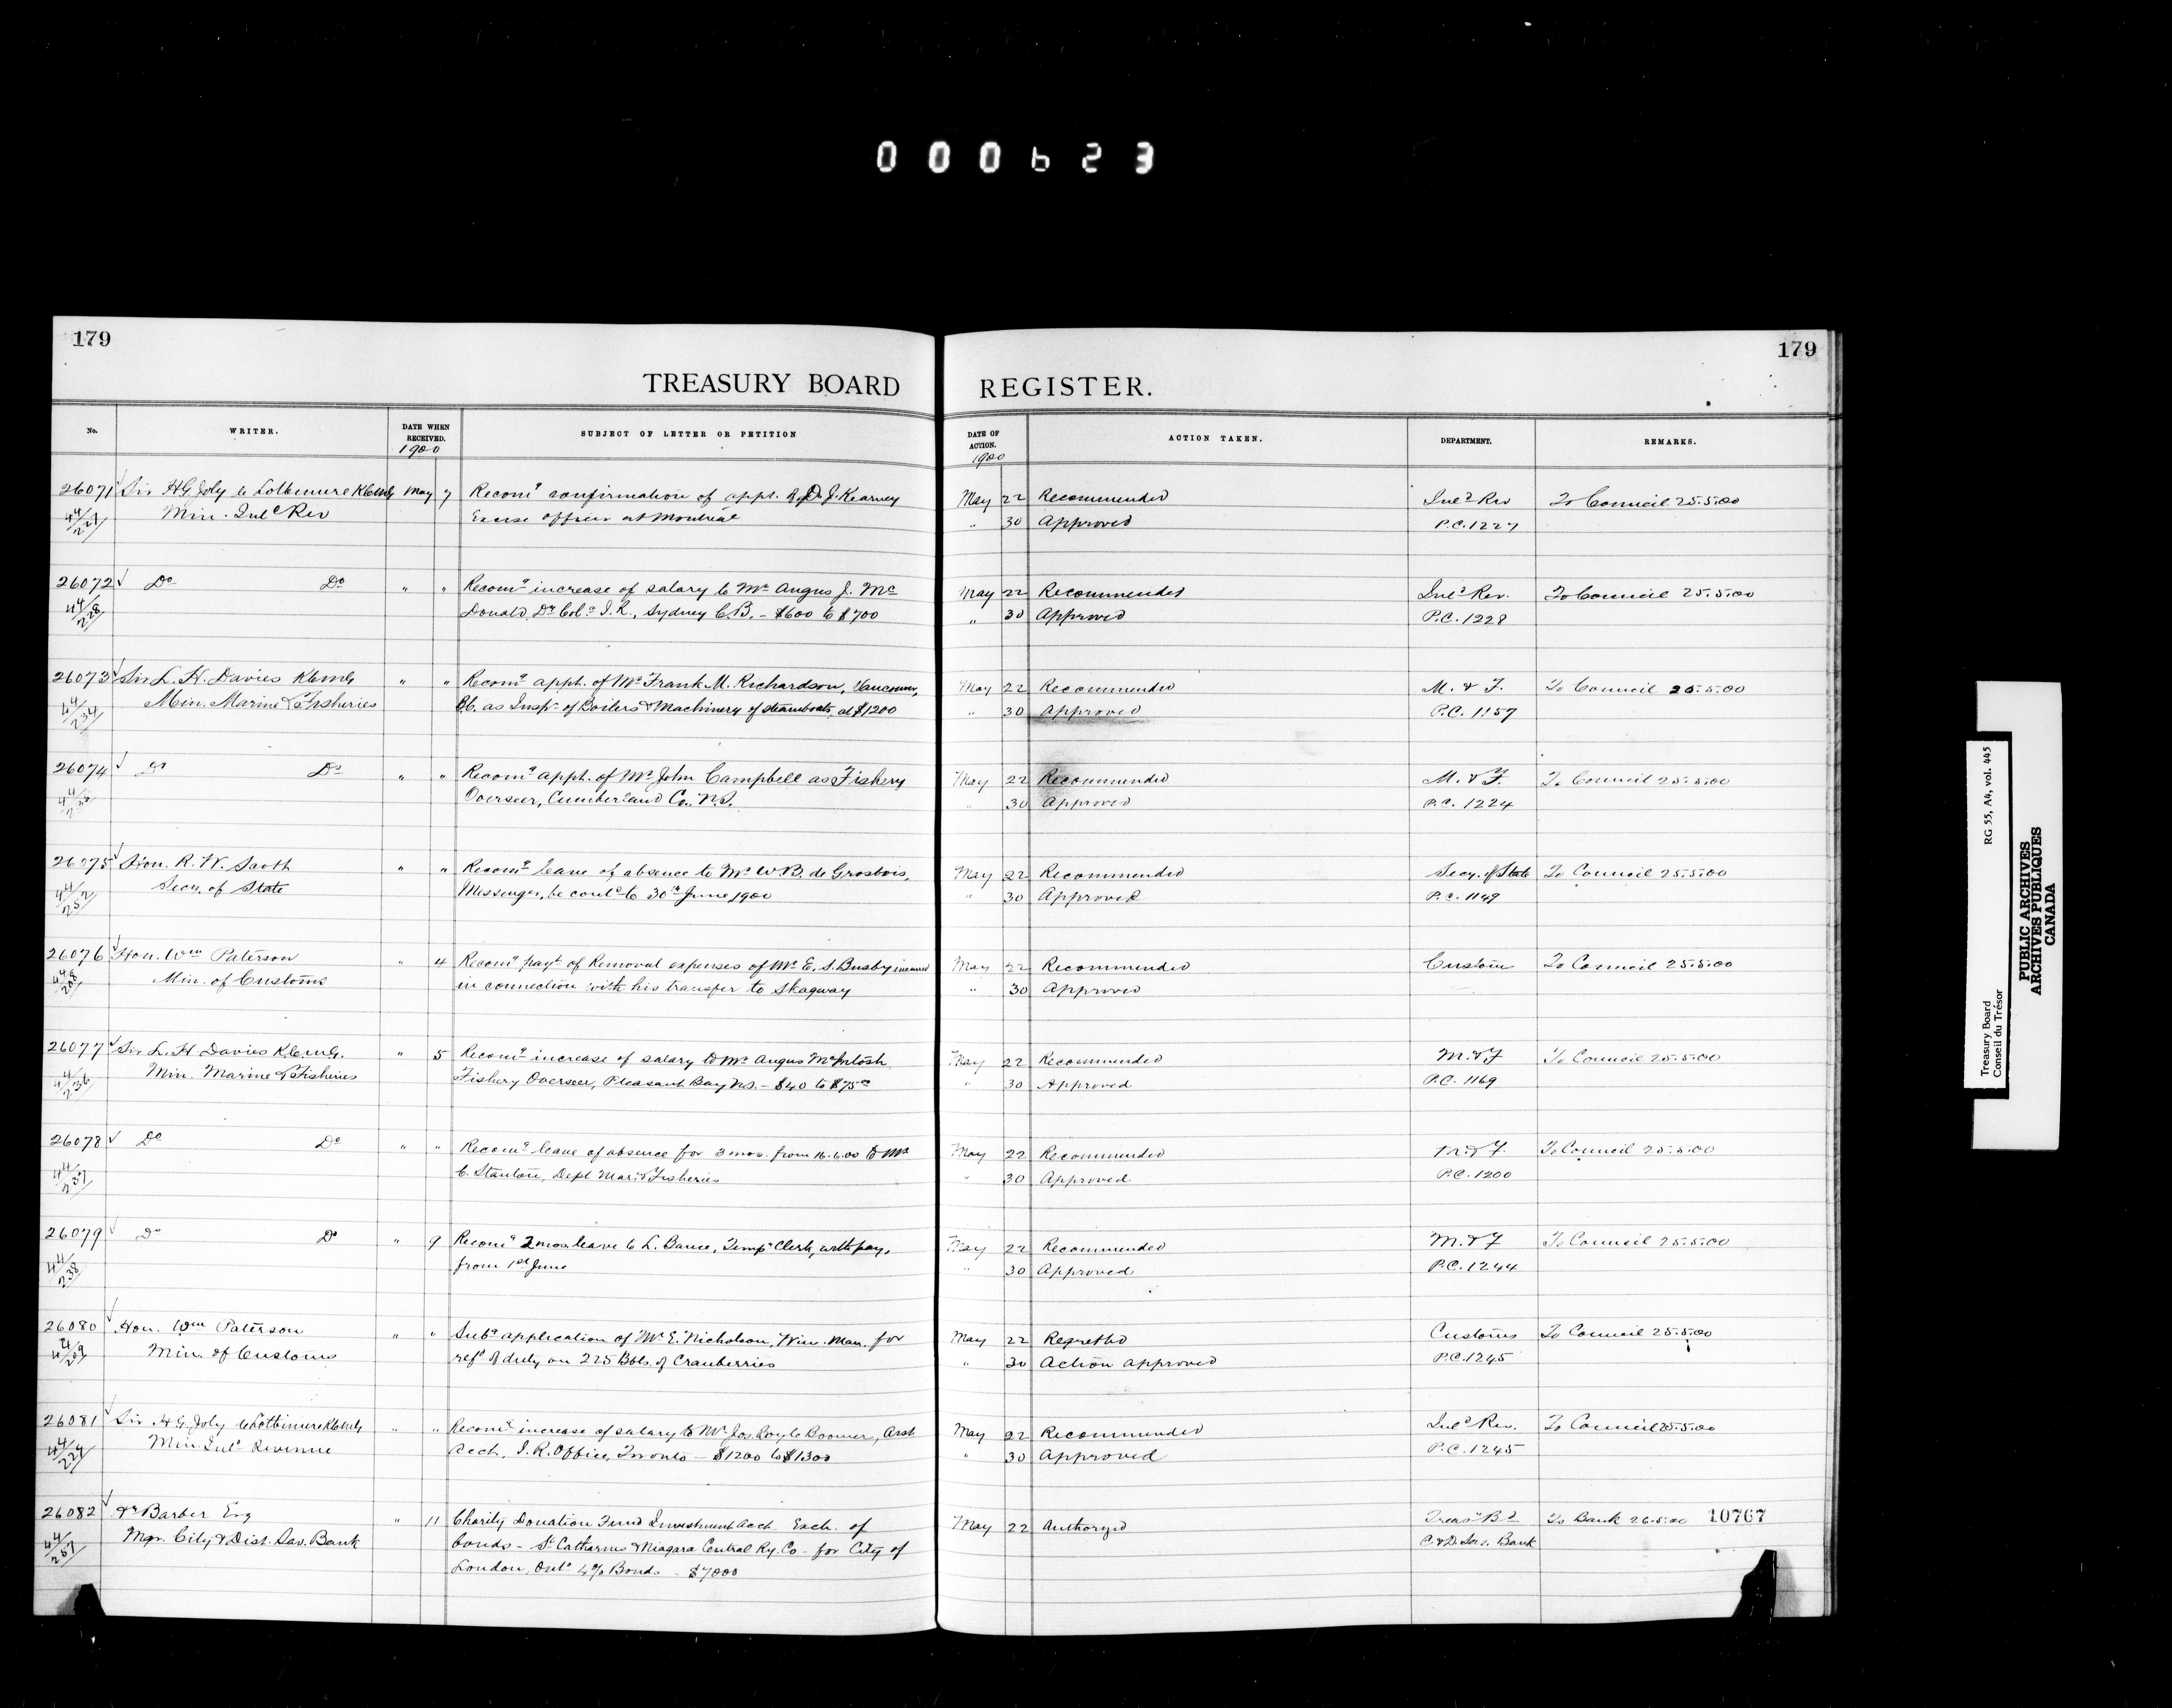 000623
179
179
TREASURY BOARD REGISTER.
No. WRITER. DATE WHEN RECEIVED. SUBJECT OF LETTER OR PETITION DATE OF ACTION. ACTION TAKEN. DEPARTMENT. REMARKS.
1900 1900
26071 Sir H G Joly de Lotbiniere KCMG May 7 Recomg confirmation of appt. of D. J. Kearney May 22 Recommended Inld Rev To Council 25.5.00
44/227 Min. Inld Rev Excise officer at Montreal " 30 Approved P.C. 1227
26072 Do Do " " Recomg increase of salary to Mr Angus J. Mc May 22 Recommended Inld Rev. To Council 25.5.00
44/228 Donald, Dy Colr I.R., Sydney C.B. - $600 to $700 " 30 Approved P.C. 1228
26073 Sir L. H. Davies KCMG " " Recomg appt. of Mr Frank M. Richardson, Vancouver, May 22 Recommended M. & F. To Council 25.5.00
44/234 Min. Marine & Fisheries BC. as Inspr of Boilers & Machinery of steamboats, at $1200 " 30 Approved P.C. 1157
26074 Do Do " " Recomg appt. of Mr John Campbell as Fishery May 22 Recommended M. & F. To Council 25.5.00
Overseer, Cumberland Co. N.S. " 30 Approved P.C. 1224
26075 Hon. R. W. Scott " " Recomg leave of absence to Mr W B. de Grosbois, May 22 Recommended Secy. of State To Council 25.5.00
44/252 Secy. of State Messenger, be contd to 30th June 1900 " 30 Approved P.C. 1149
26076 Hon. Wm Paterson " 4 Recomg payt of Removal expenses of Mr E. S. Busby incurred May 22 Recommended Customs To Council 25.5.00
Min. of Customs in connection with his transfer to Skagway " 30 Approved
26077 Sir L. H Davies KCMG. " 5 Recomg increase of salary to Mr Angus McIntosh May 22 Recommended M. & F To Council 25.5.00
44/236 Min. Marine & Fisheries Fishery Overseer, Pleasant Bay N.S. - $40 to $75.00 " 30 Approved P.C. 1169
26078 Do Do " " Recomg leave of absence for 3 mos. from 16.6.00 to Mr May 22 Recommended M. & F. To Council 25.5.00
44/237 C. Stanton, Dept Mar. & Fisheries " 30 Approved P.C. 1200
26079 Do Do " 9 Recomg 2 mos. leave to L. Bance, Tempy Clerk, with pay, May 22 Recommended M. & F To Council 25.5.00
44/238 from 1st June " 30 Approved P.C. 1244
26080 Hon. Wm Paterson " " Subg application of Mr E. Nicholson, Win. Man. for May 22 Regretted Customs To Council 25.5.00
Min. of Customs refd of duty on 225 Bbls. of Cranberries " 30 Action approved P.C. 1245
26081 Sir H G Joly de Lotbiniere KCMG " " Recomg increase of salary to Mr Jas. Boomer, Asst May 22 Recommended Inld Rev. To Council 25.5.00
44/229 Min. Inld Revenue Acct, I.R. Office, Toronto - $1200 to $1300 " 30 Approved P.C. 1245
26082 Barber Esq " 11 Charity Donation Fund Investment acct. Exch. of May 22 Authorized Treasy Bd To Bank 26.5.00 10767
44/257 Mgr. City & Dist. Sav. Bank bonds - St Catharines & Niagara Central Ry. Co - for City of C. & D. Sav. Bank
London, Ont. 4% Bonds - $7000
Treasury Board RG 55, A4, vol. 445
Conseil du Trésor
PUBLIC ARCHIVES
ARCHIVES PUBLIQUES
CANADA